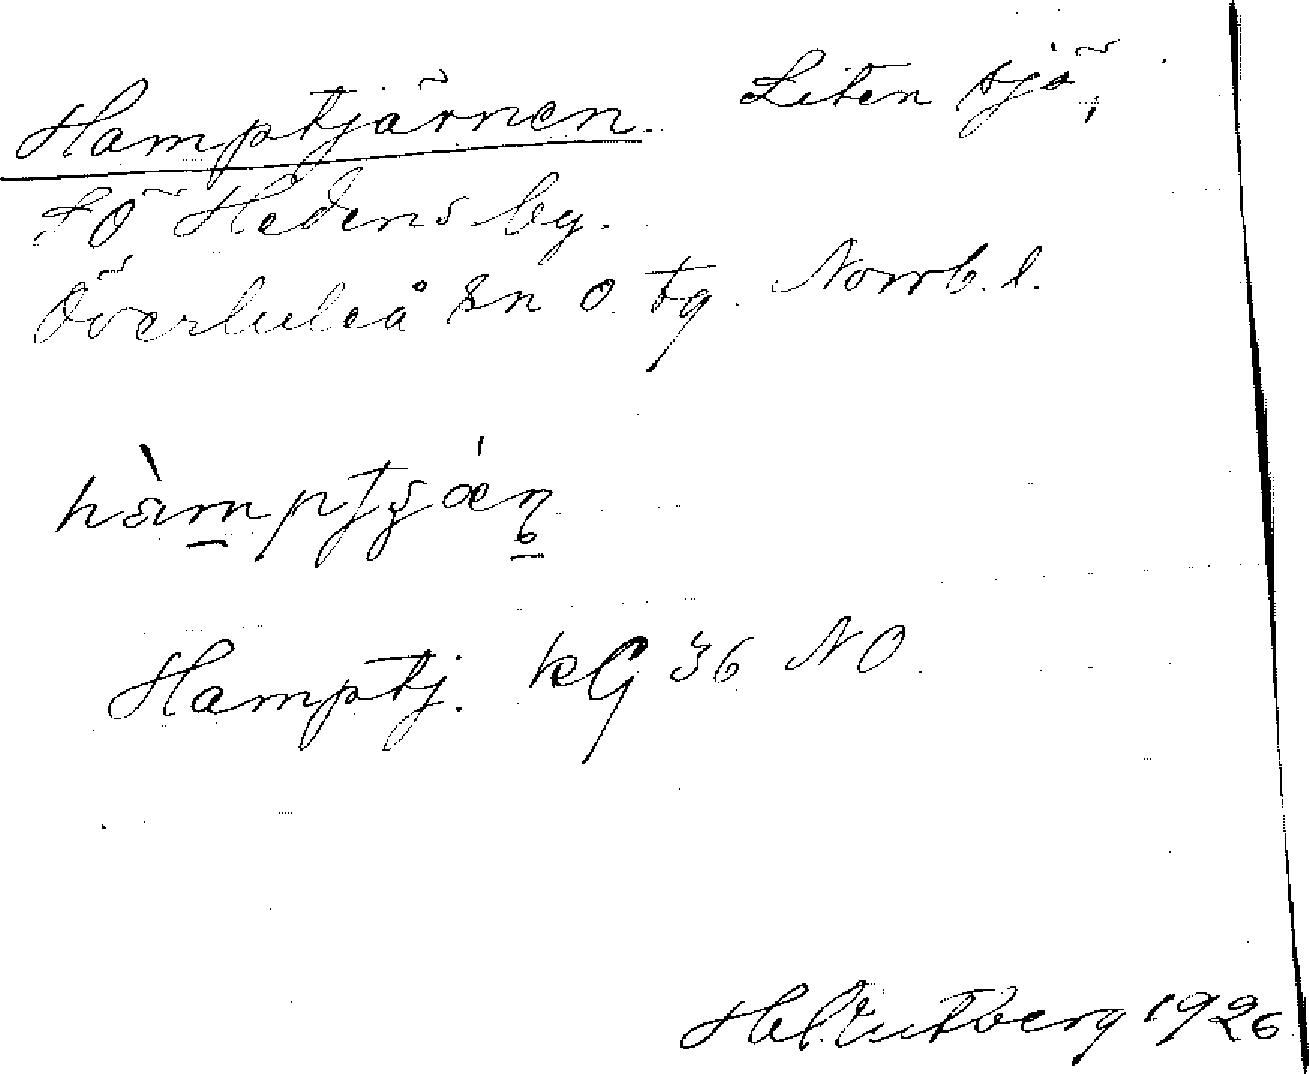 Hamptjärnen. Liten sjö,
SÖ Hedens by.
Överluleå sn o. tg. Norrb. l.
Hamptj. kG 36 NO.
1926